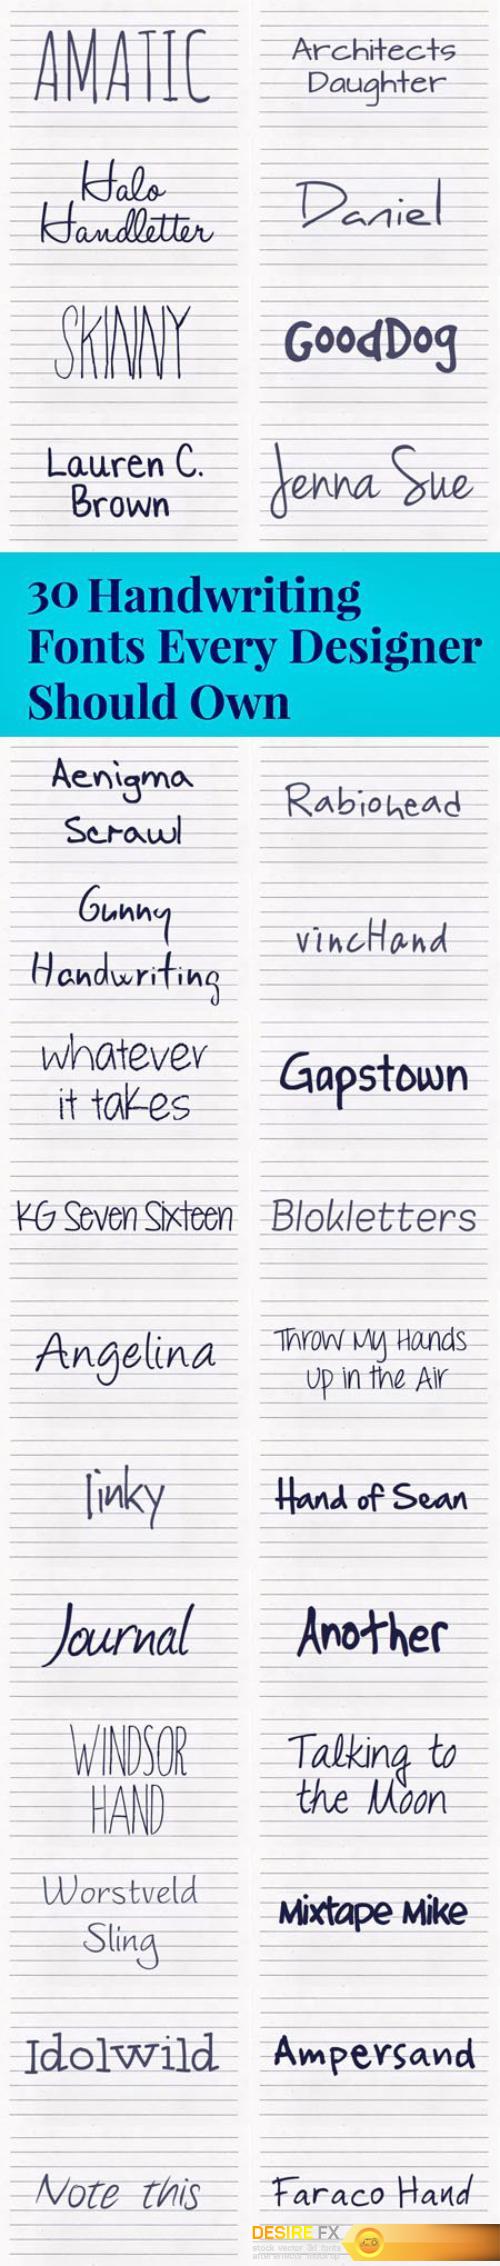 AMATIC
Architects
Daughter
Halo
Handletter
Daniel
SKINNY
GoodDog
Lauren C.
Brown
Jenna Sue
30 Handwriting
Fonts Every Designer
Should Own
Aenigma
Scrawl
Rabiohead
Gunny
Handwriting
vincHand
whatever
it takes
Gapstown
KG Seven Sixteen
Blokletters
Angelina
Throw My Hands
Up in the Air
Jinky
Hand of Sean
Journal
Another
WINDSOR
HAND
Talking to
the Moon
Worstveld
Sling
Mixtape Mike
Idolwild
Ampersand
Note this
Faraco Hand
DESIRE FX
stock vector 3d fonts
after effects mockup